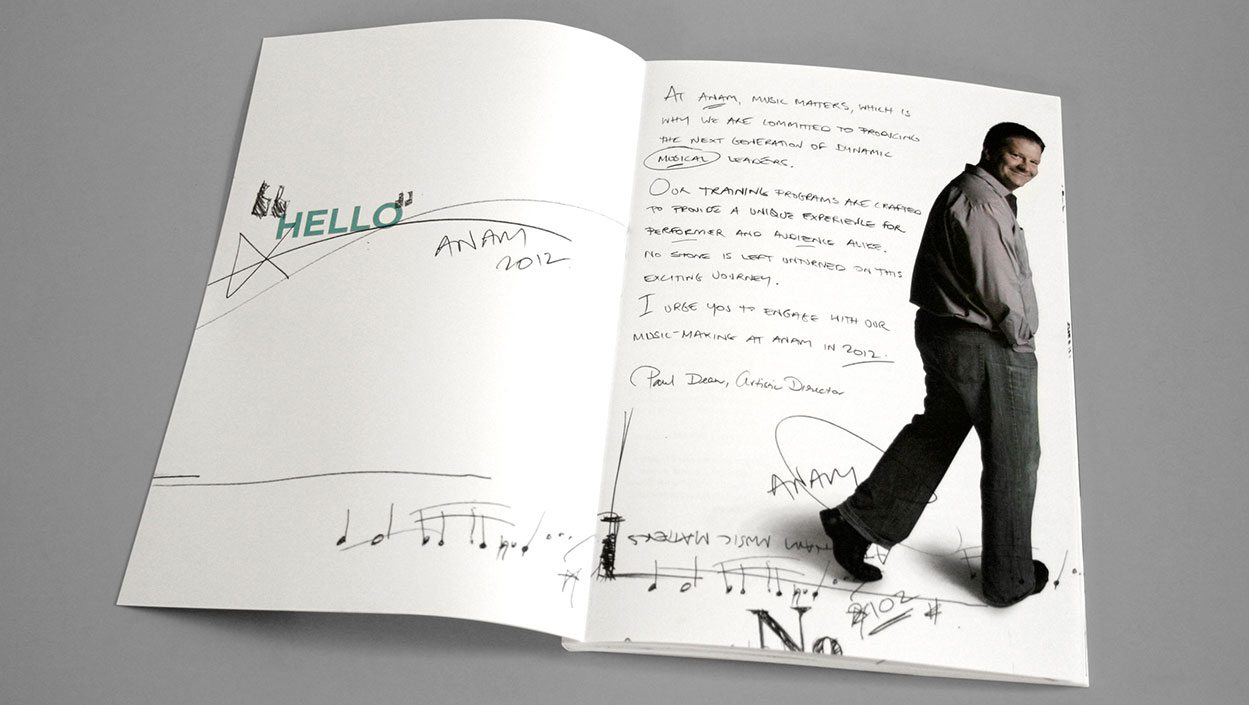 “HELLO”
ANAM
2012
AT ANAM, MUSIC MATTERS, WHICH IS
WHY WE ARE COMMITTED TO PRODUCING
THE NEXT GENERATION OF DYNAMIC
MUSICAL LEADERS.
OUR TRAINING PROGRAMS ARE CRAFTED
TO PROVIDE A UNIQUE EXPERIENCE FOR
PERFORMER AND AUDIENCE ALIKE.
NO STONE IS LEFT UNTURNED ON THIS
EXCITING JOURNEY.
I URGE YOU TO ENGAGE WITH OUR
MUSIC-MAKING AT ANAM IN 2012.
Paul Dean, Artistic Director
ANAM
AT ANAM MUSIC MATTERS
2102
No